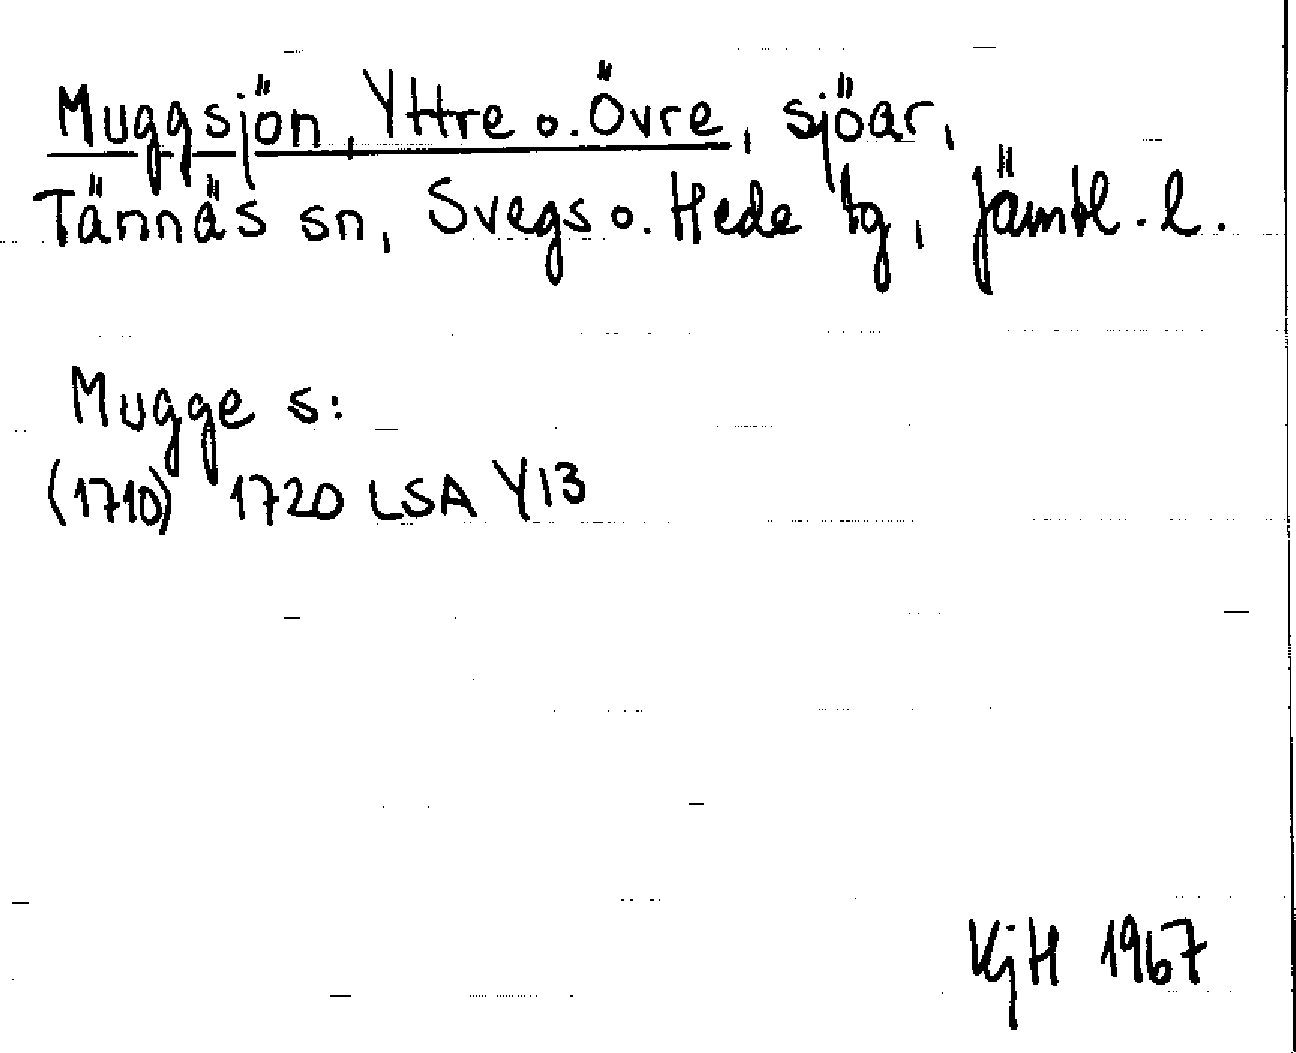 Muggsjön, Yttre o. Övre, sjöar,
Tännäs sn, Svegs o. Hede tg, Jämtl. l.
Mugge s:
(1710) 1720 LSA Y13
KjH 1967